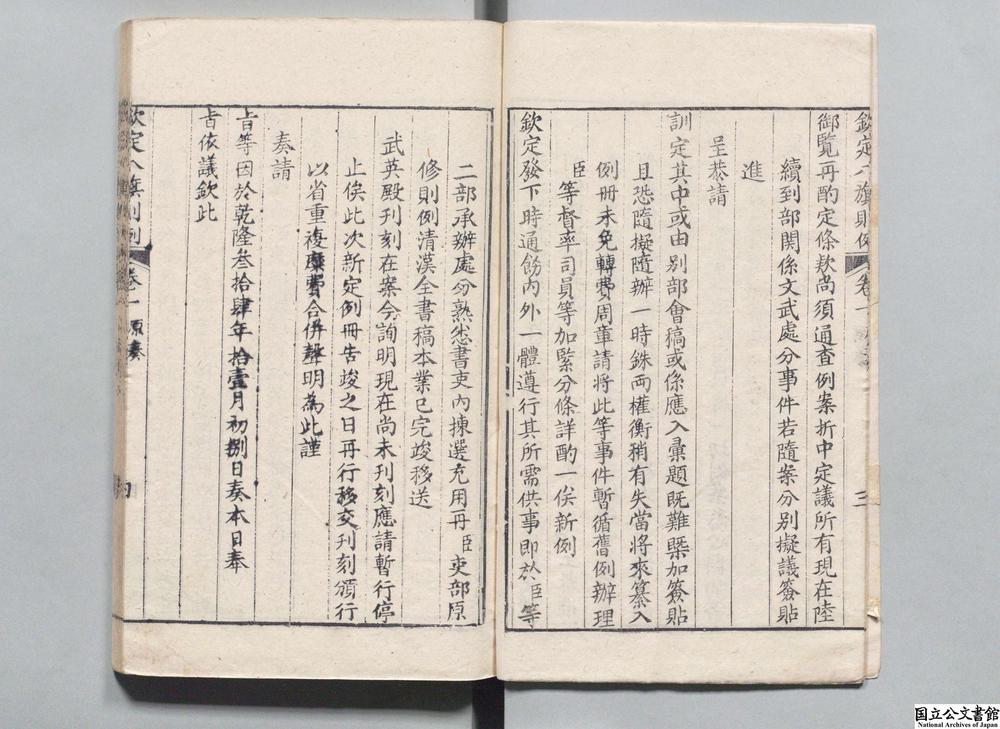 欽定八旗則例 卷一 三
御覽再酌定條欵尚須通查例案折中定議所有現在陸
續到部関係文武處分事件若隨案分别擬議簽貼
進
呈恭請
訓定其中或由别部會稿或係應入彙題既難槩加簽貼
且恐隨擬隨辦一時銖兩權衡稍有失當將來纂入
例冊未免轉費周章請將此等事件暫循舊例辦理
臣等督率司員等加緊分條詳酌一俟新例
欽定發下時通飭内外一體遵行其所需供事即於臣等
二部承辦處分熟悉書吏内揀選充用再臣吏部原
修則例清漢全書稿本業已完竣移送
武英殿刊刻在案今詢明現在尚未刊刻應請暫行停
止俟此次新定例冊告竣之日再行移交刊刻頒行
以省重複糜費合併聲明為此謹
奏請
旨等因於乾隆叁拾肆年拾壹月初捌日奏本日奉
旨依議欽此
欽定八旗則例 卷一 原奏
国立公文書館
National Archives of Japan